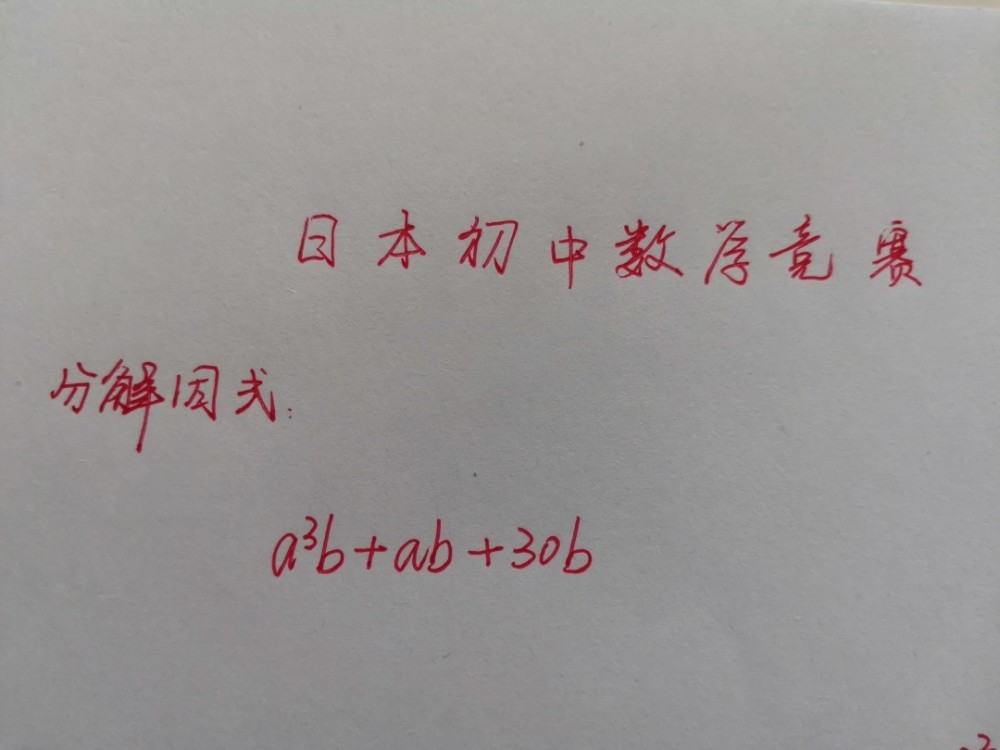 日本初中数学竞赛
分解因式:
a³b+ab+30b